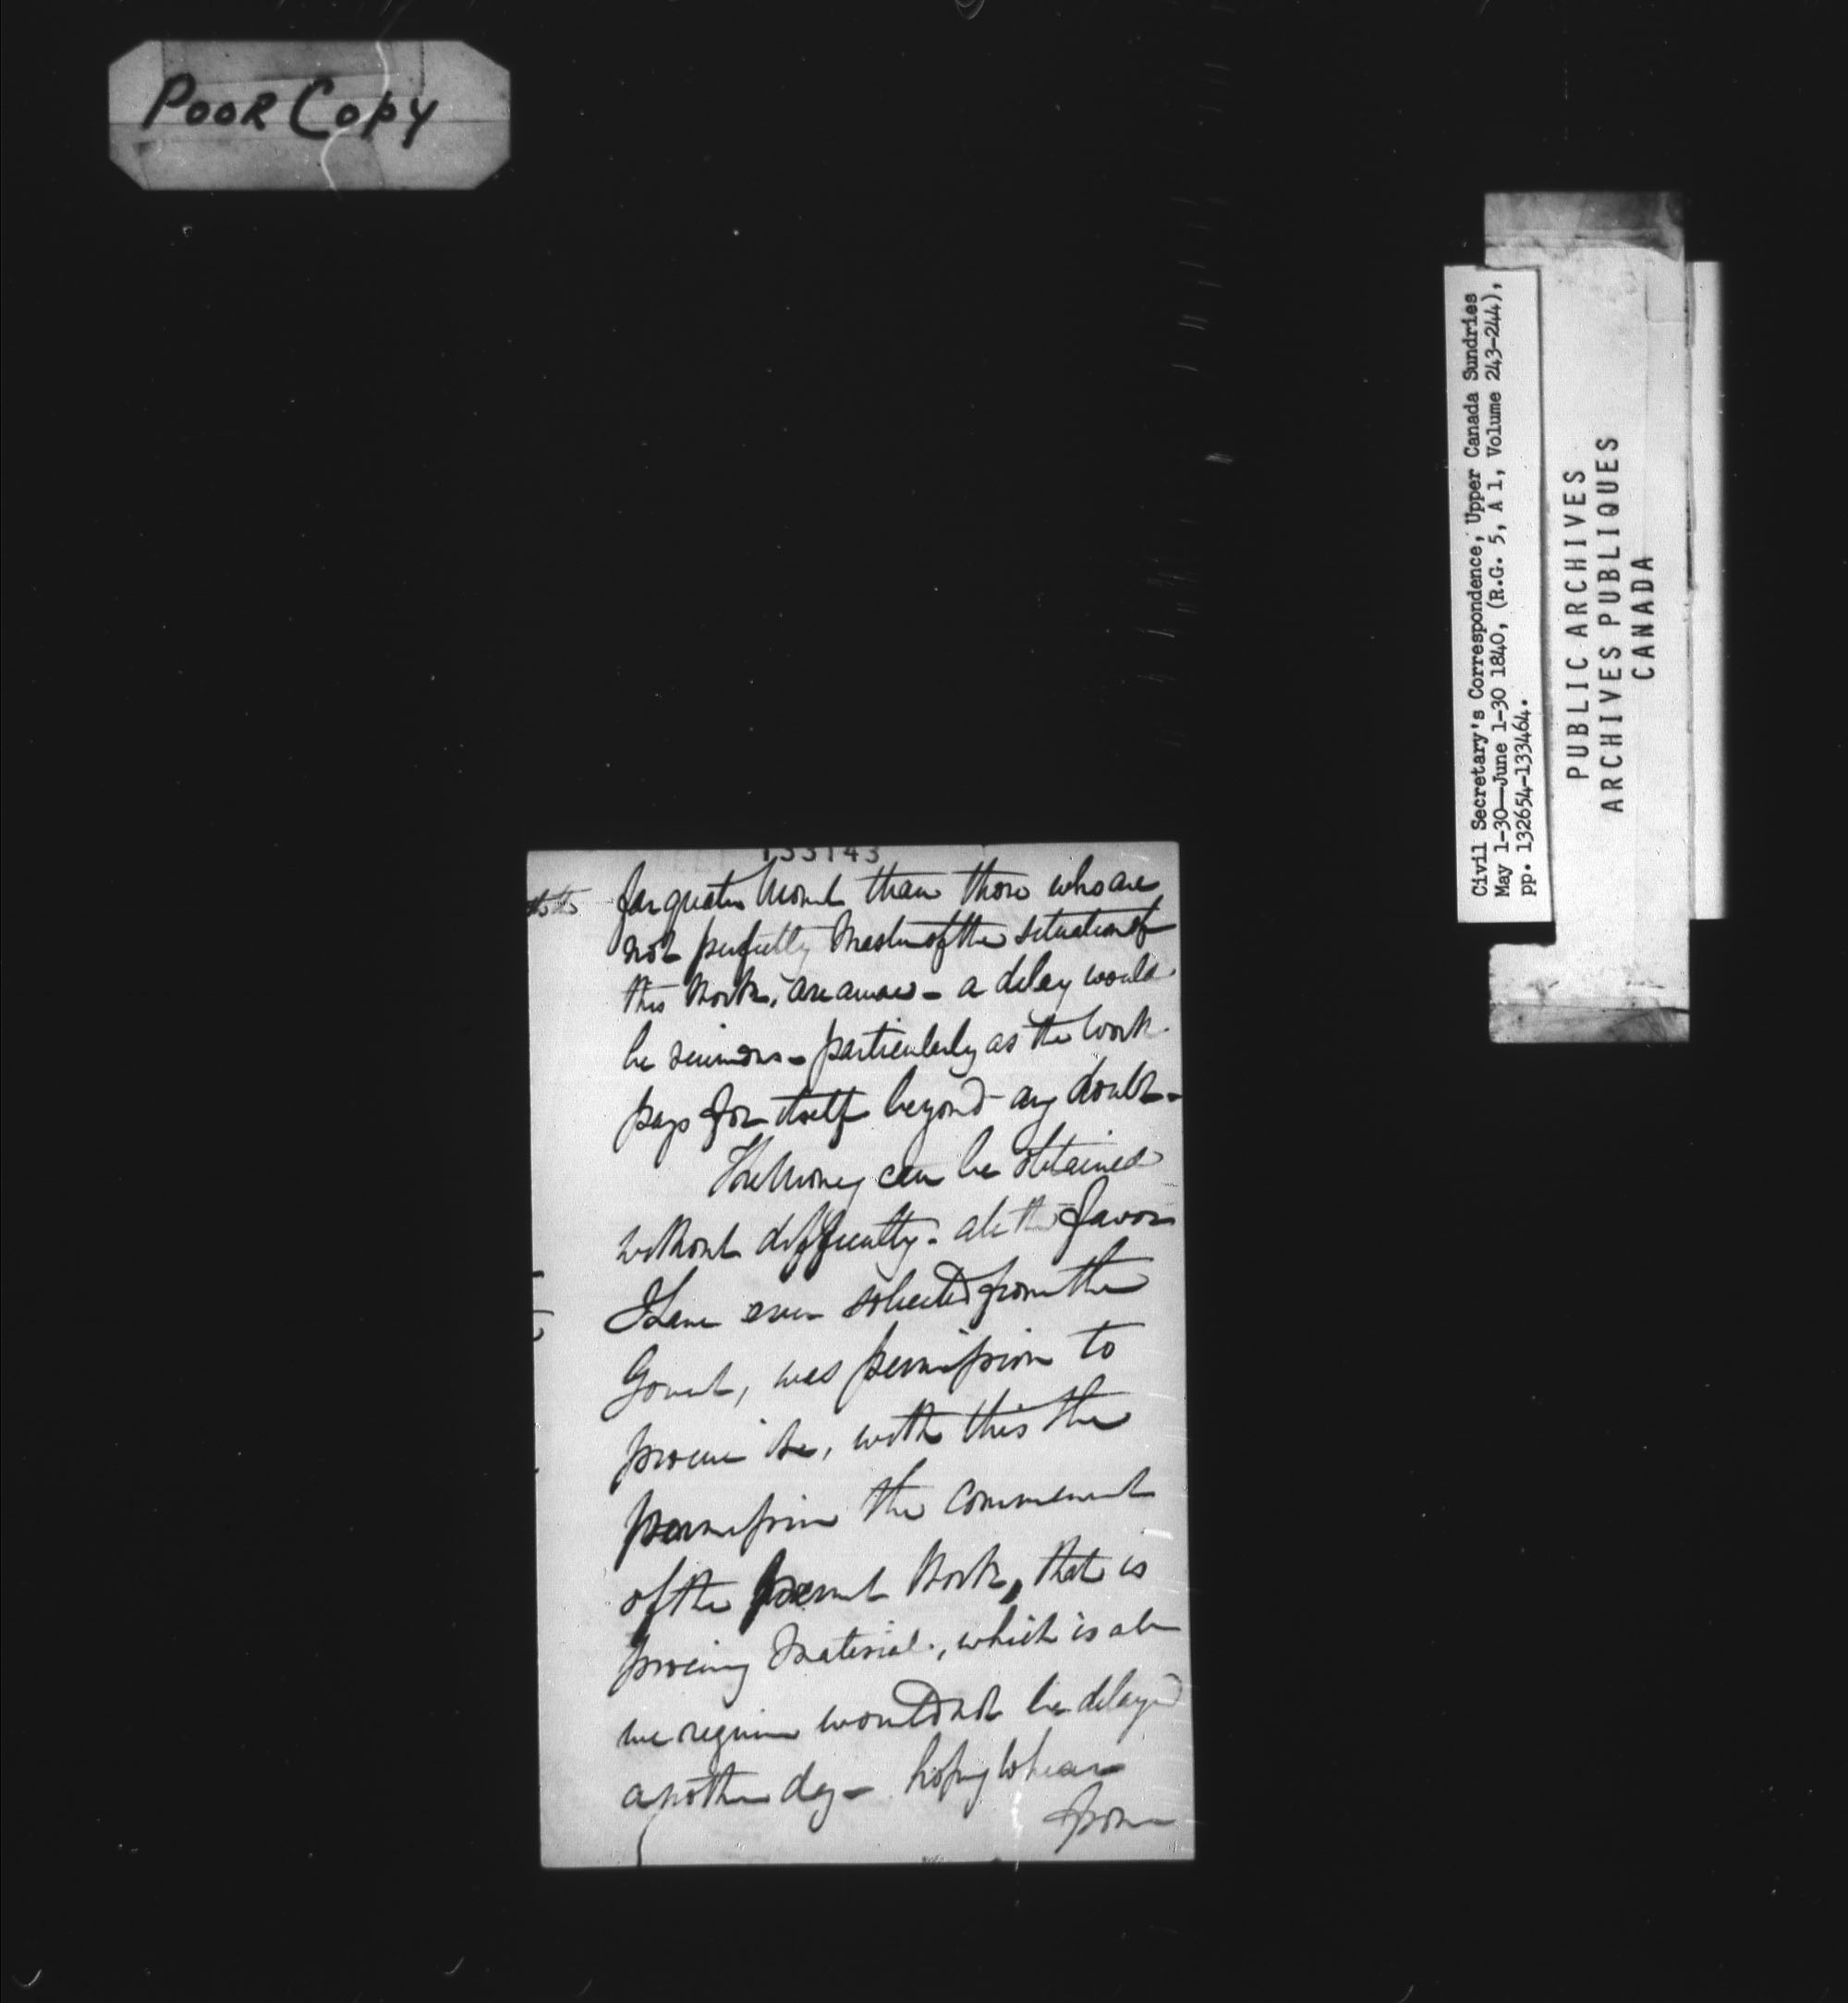 POOR COPY
Civil Secretary's Correspondence, Upper Canada Sundries
May 1-30—June 1-30 1840, (R.G. 5, A 1, Volume 243-244),
pp. 132654-133464.
PUBLIC ARCHIVES
ARCHIVES PUBLIQUES
CANADA
133143
far greater than those who are
not perfectly Master of the situation of
this Work, are aware - a delay would
be ruinous - particularly as the Work
pays for itself beyond any doubt -
The Money can be obtained
without difficulty - all the favor
I have ever solicited from the
Govert, was permission to
procure it, with this the
permission the
of the present Work, that is
procuring Material, which is all
we require would not be delayed
another day - hoping to hear
from